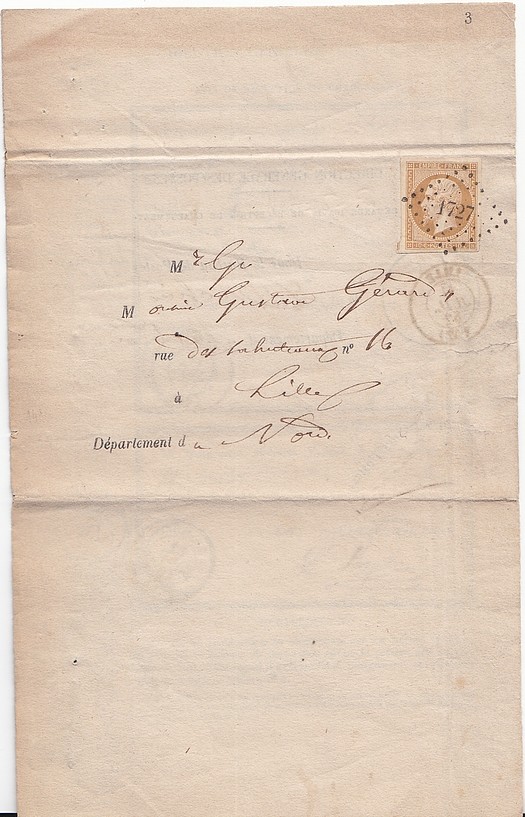 3
EMPIRE FRANC
1727
Mr Gve
Monsieur Gustave Gérard
rue des nº 16
à Lille
Département du Nord.